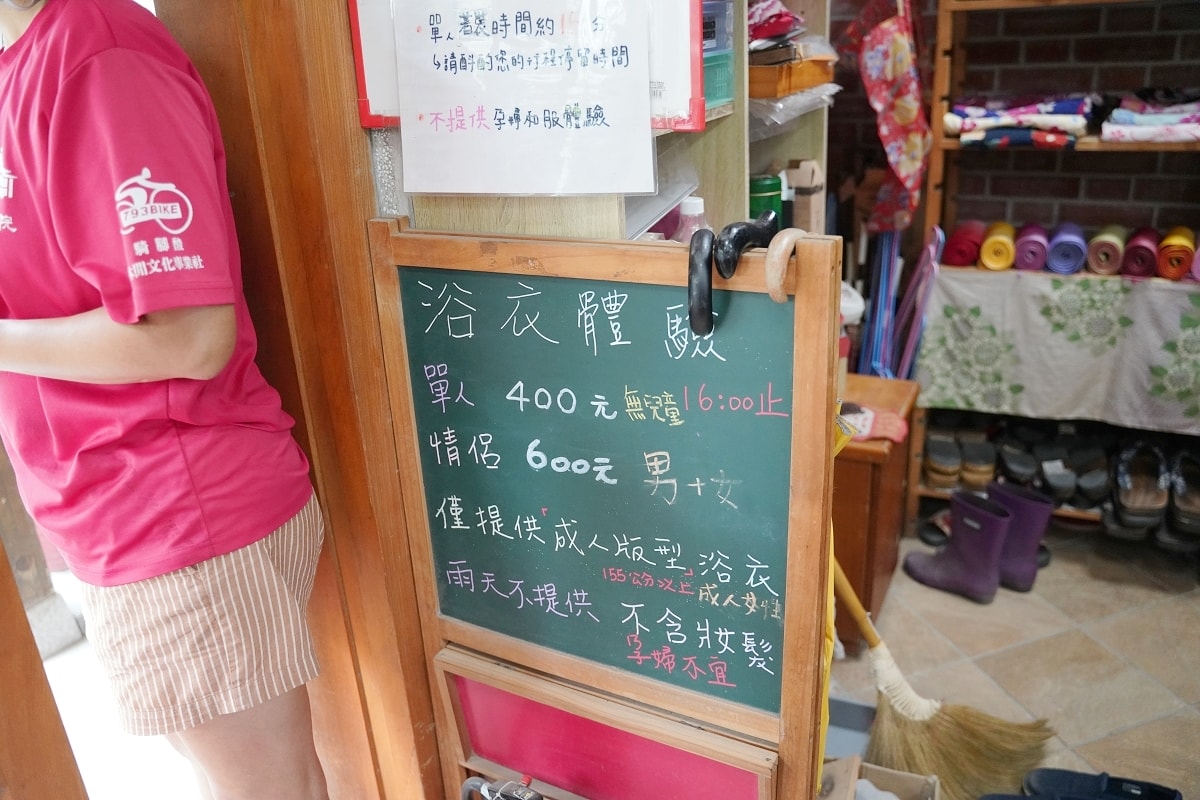 單人著裝時間約15分
↳請斟酌您的行程停留時間
不提供孕婦和服體驗
793BIKE
騎驛
休閒文化事業社
院
浴衣體驗
單人 400元 無兒童 16:00止
情侶 600元 男+女
僅提供「成人版型」浴衣
155公分以上 成人女性
雨天不提供 不含妝髮
孕婦不宜